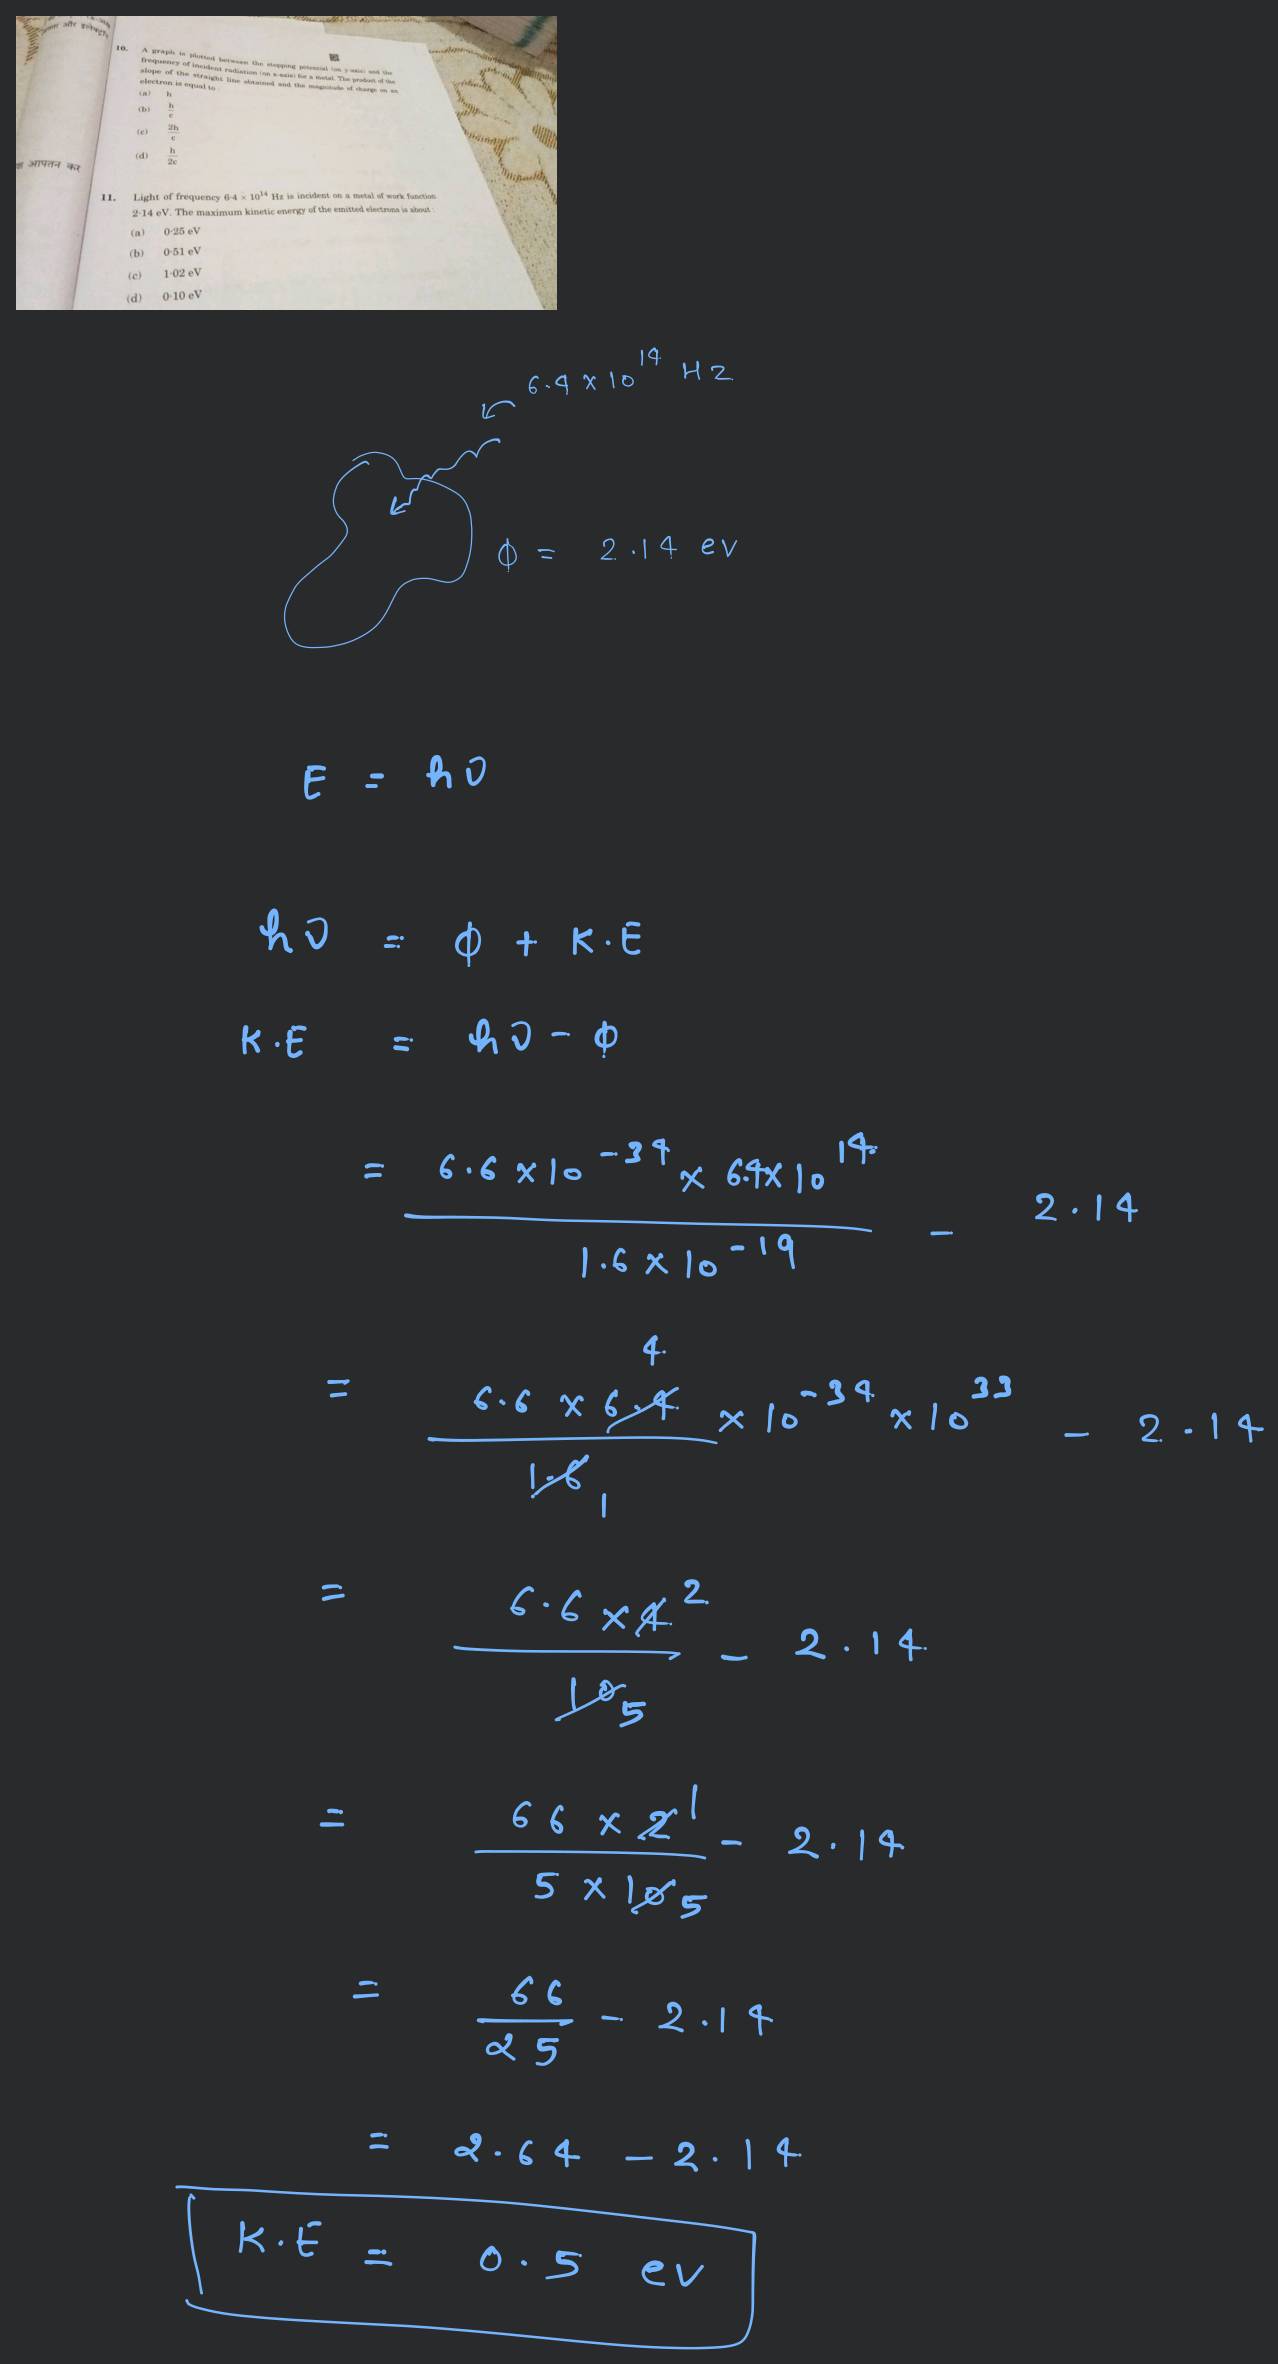 आपतन कर
10. A graph is plotted between the stopping potential (on y-axis) and the
frequency of incident radiation (on x-axis) for a metal. The product of the
slope of the straight line obtained and the magnitude of charge on an
electron is equal to
(a) h
(b) h/e
(c) 2h/e
(d) h/2e
11. Light of frequency 6·4 × 10¹⁴ Hz is incident on a metal of work function
2·14 eV. The maximum kinetic energy of the emitted electrons is about :
(a) 0·25 eV
(b) 0·51 eV
(c) 1·02 eV
(d) 0·10 eV
6.4 × 10¹⁴ Hz
ϕ = 2.14 ev
E = hν
hν = ϕ + K.E
K.E = hν - ϕ
= 6.6 × 10⁻³⁴ × 6.4 × 10¹⁴ / 1.6 × 10⁻¹⁹ - 2.14
4
= 6.6 × 6.4 / 1.6 × 10⁻³⁴ × 10³³ - 2.14
1
= 6.6 × 4 2 / 10 5 - 2.14
= 66 × 2 1 / 5 × 10 5 - 2.14
= 66 / 25 - 2.14
= 2.64 - 2.14
K.E = 0.5 ev